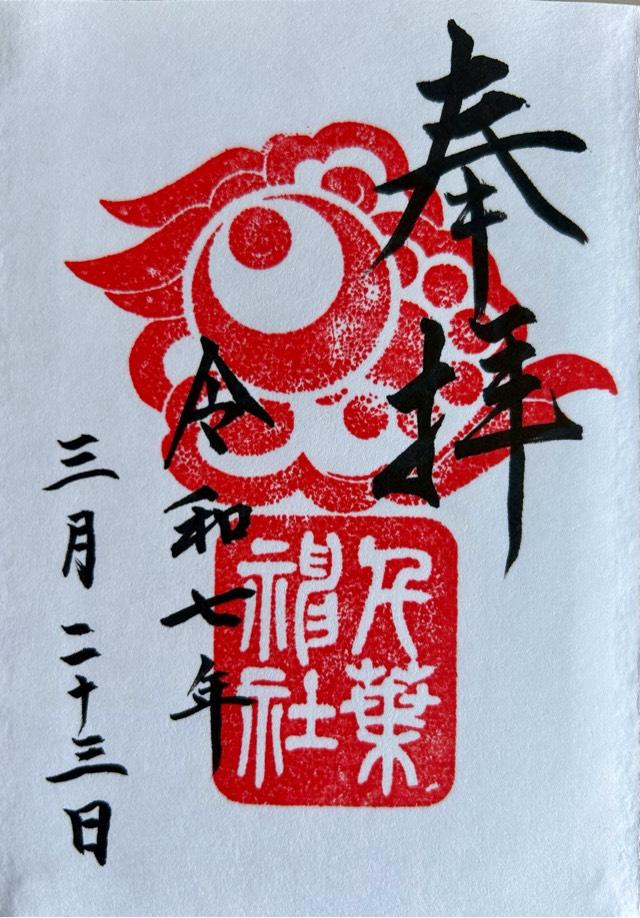 奉拝
千葉
神社
令和七年
三月二十三日